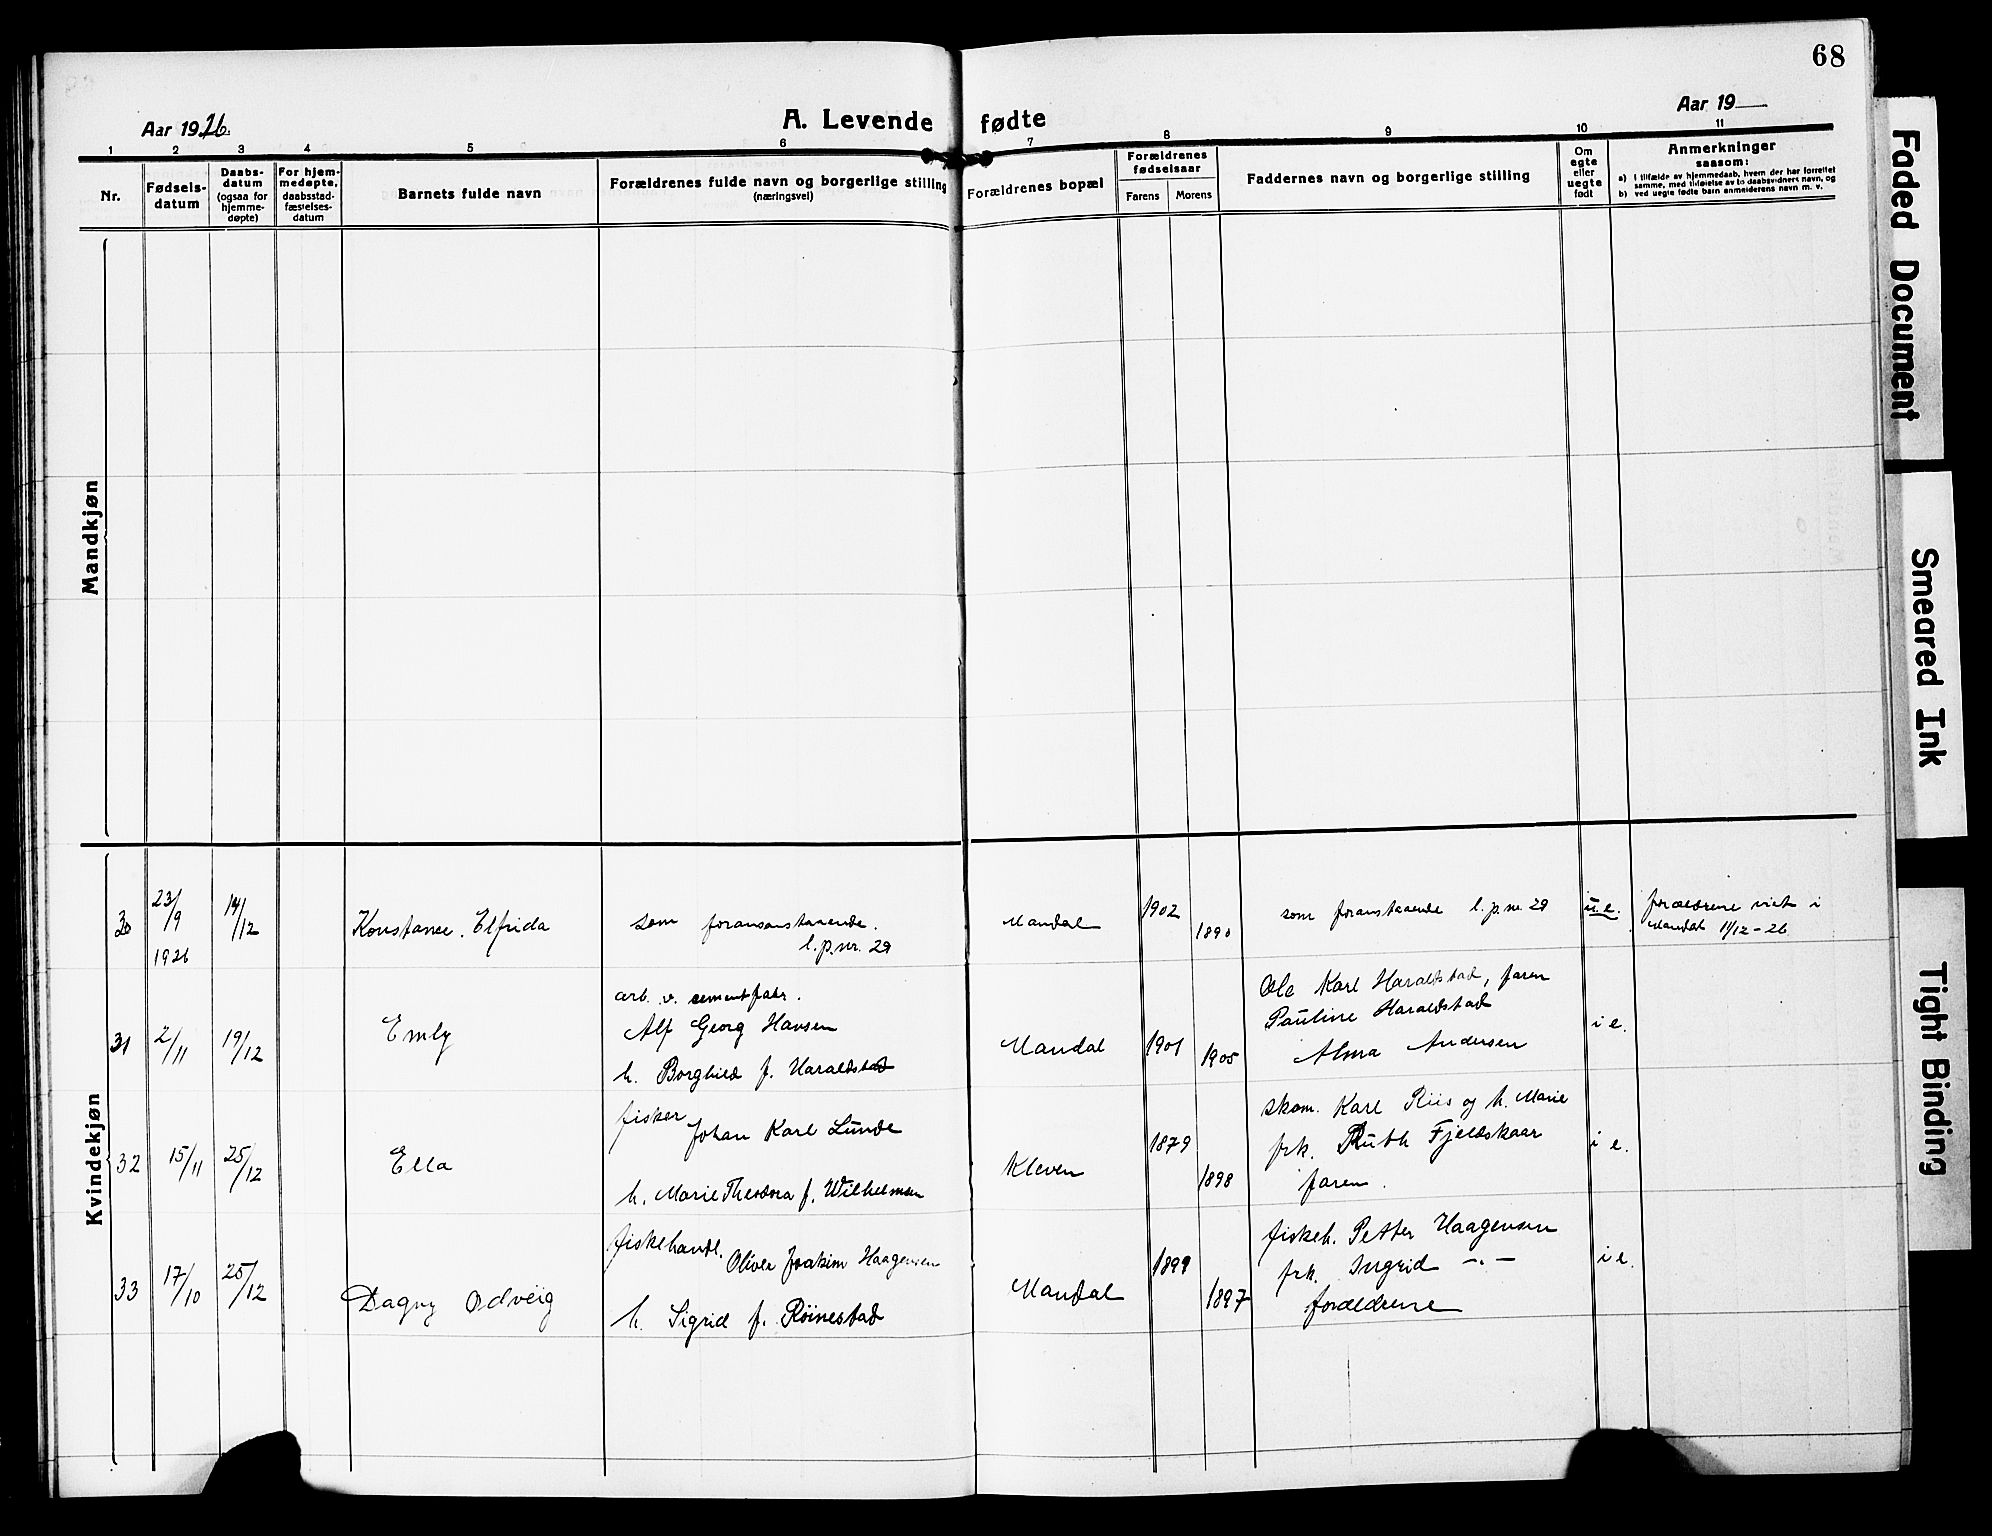 68
Aar 1926.
A. Levende fødte
Aar 19—
1 2 3 4 5 6 7 8 9 10 11
Nr.
Fødsels-
datum
Daabs-
datum
(ogsaa for
hjemme-
døpte)
For hjem-
medøpte,
daabsstad-
fæstelses-
datum
Barnets fulde navn
Forældrenes fulde navn og borgerlige stilling
(næringsvei)
Forældrenes bopæl
Forældrenes
fødselsaar
Farens Morens
Faddernes navn og borgerlige stilling
Om
egte
eller
uegte
født
Anmerkninger
saasom:
a) i tilfælde av hjemmedaab, hvem der har forrettet
samme, med tilføielse av to daabsvidners navn, og
b) ved uegte fødte barn anmelderens navn m. v.
Mandkjøn
Kvindekjøn
30 23/9 1926 14/12 Konstance. Elfrida
som foransanstaaende.
l. p. nr. 29
Mandal 1902 1890
som foranstaaende l. p. nr 29
u. e.
forældrene viet i
Mandal 11/12 - 26
31 2/11 19/12 Emly
arb. v. cementfabr.
Alf Georg Hansen
h. Borghild f. Haraldstad
Mandal 1901 1905
Ole Karl Haraldstad, faren
Pauline Haraldstad
Alma Andersen
i e.
32 15/11 25/12 Ella
fisker
Johan Karl Lunde
h. Marie Theodora f. Wilhelmsen
Kleven 1879 1898
skom. Karl Riis og h. Marie
frk. Ruth Fjeldskaar
faren.
i e.
33 17/10 25/12 Dagny Odveig
fiskehandl.
Oliver Joakim Haagensen
h. Sigrid f. Röinestad
Mandal 1899 1897
fiskeh. Petter Haagensen
frk. Ingrid —.—
foreldrene
i e.
Faded Document
Smeared Ink
Tight Binding